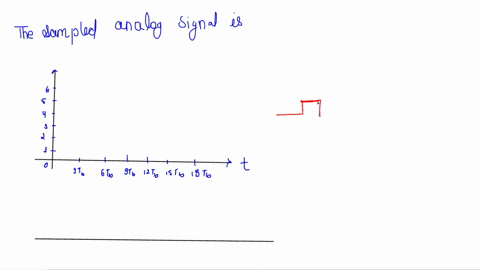 The sampled analog signal is
6
5
4
3
2
1
0
3Tb 6Tb 9Tb 12Tb 15Tb 18Tb t